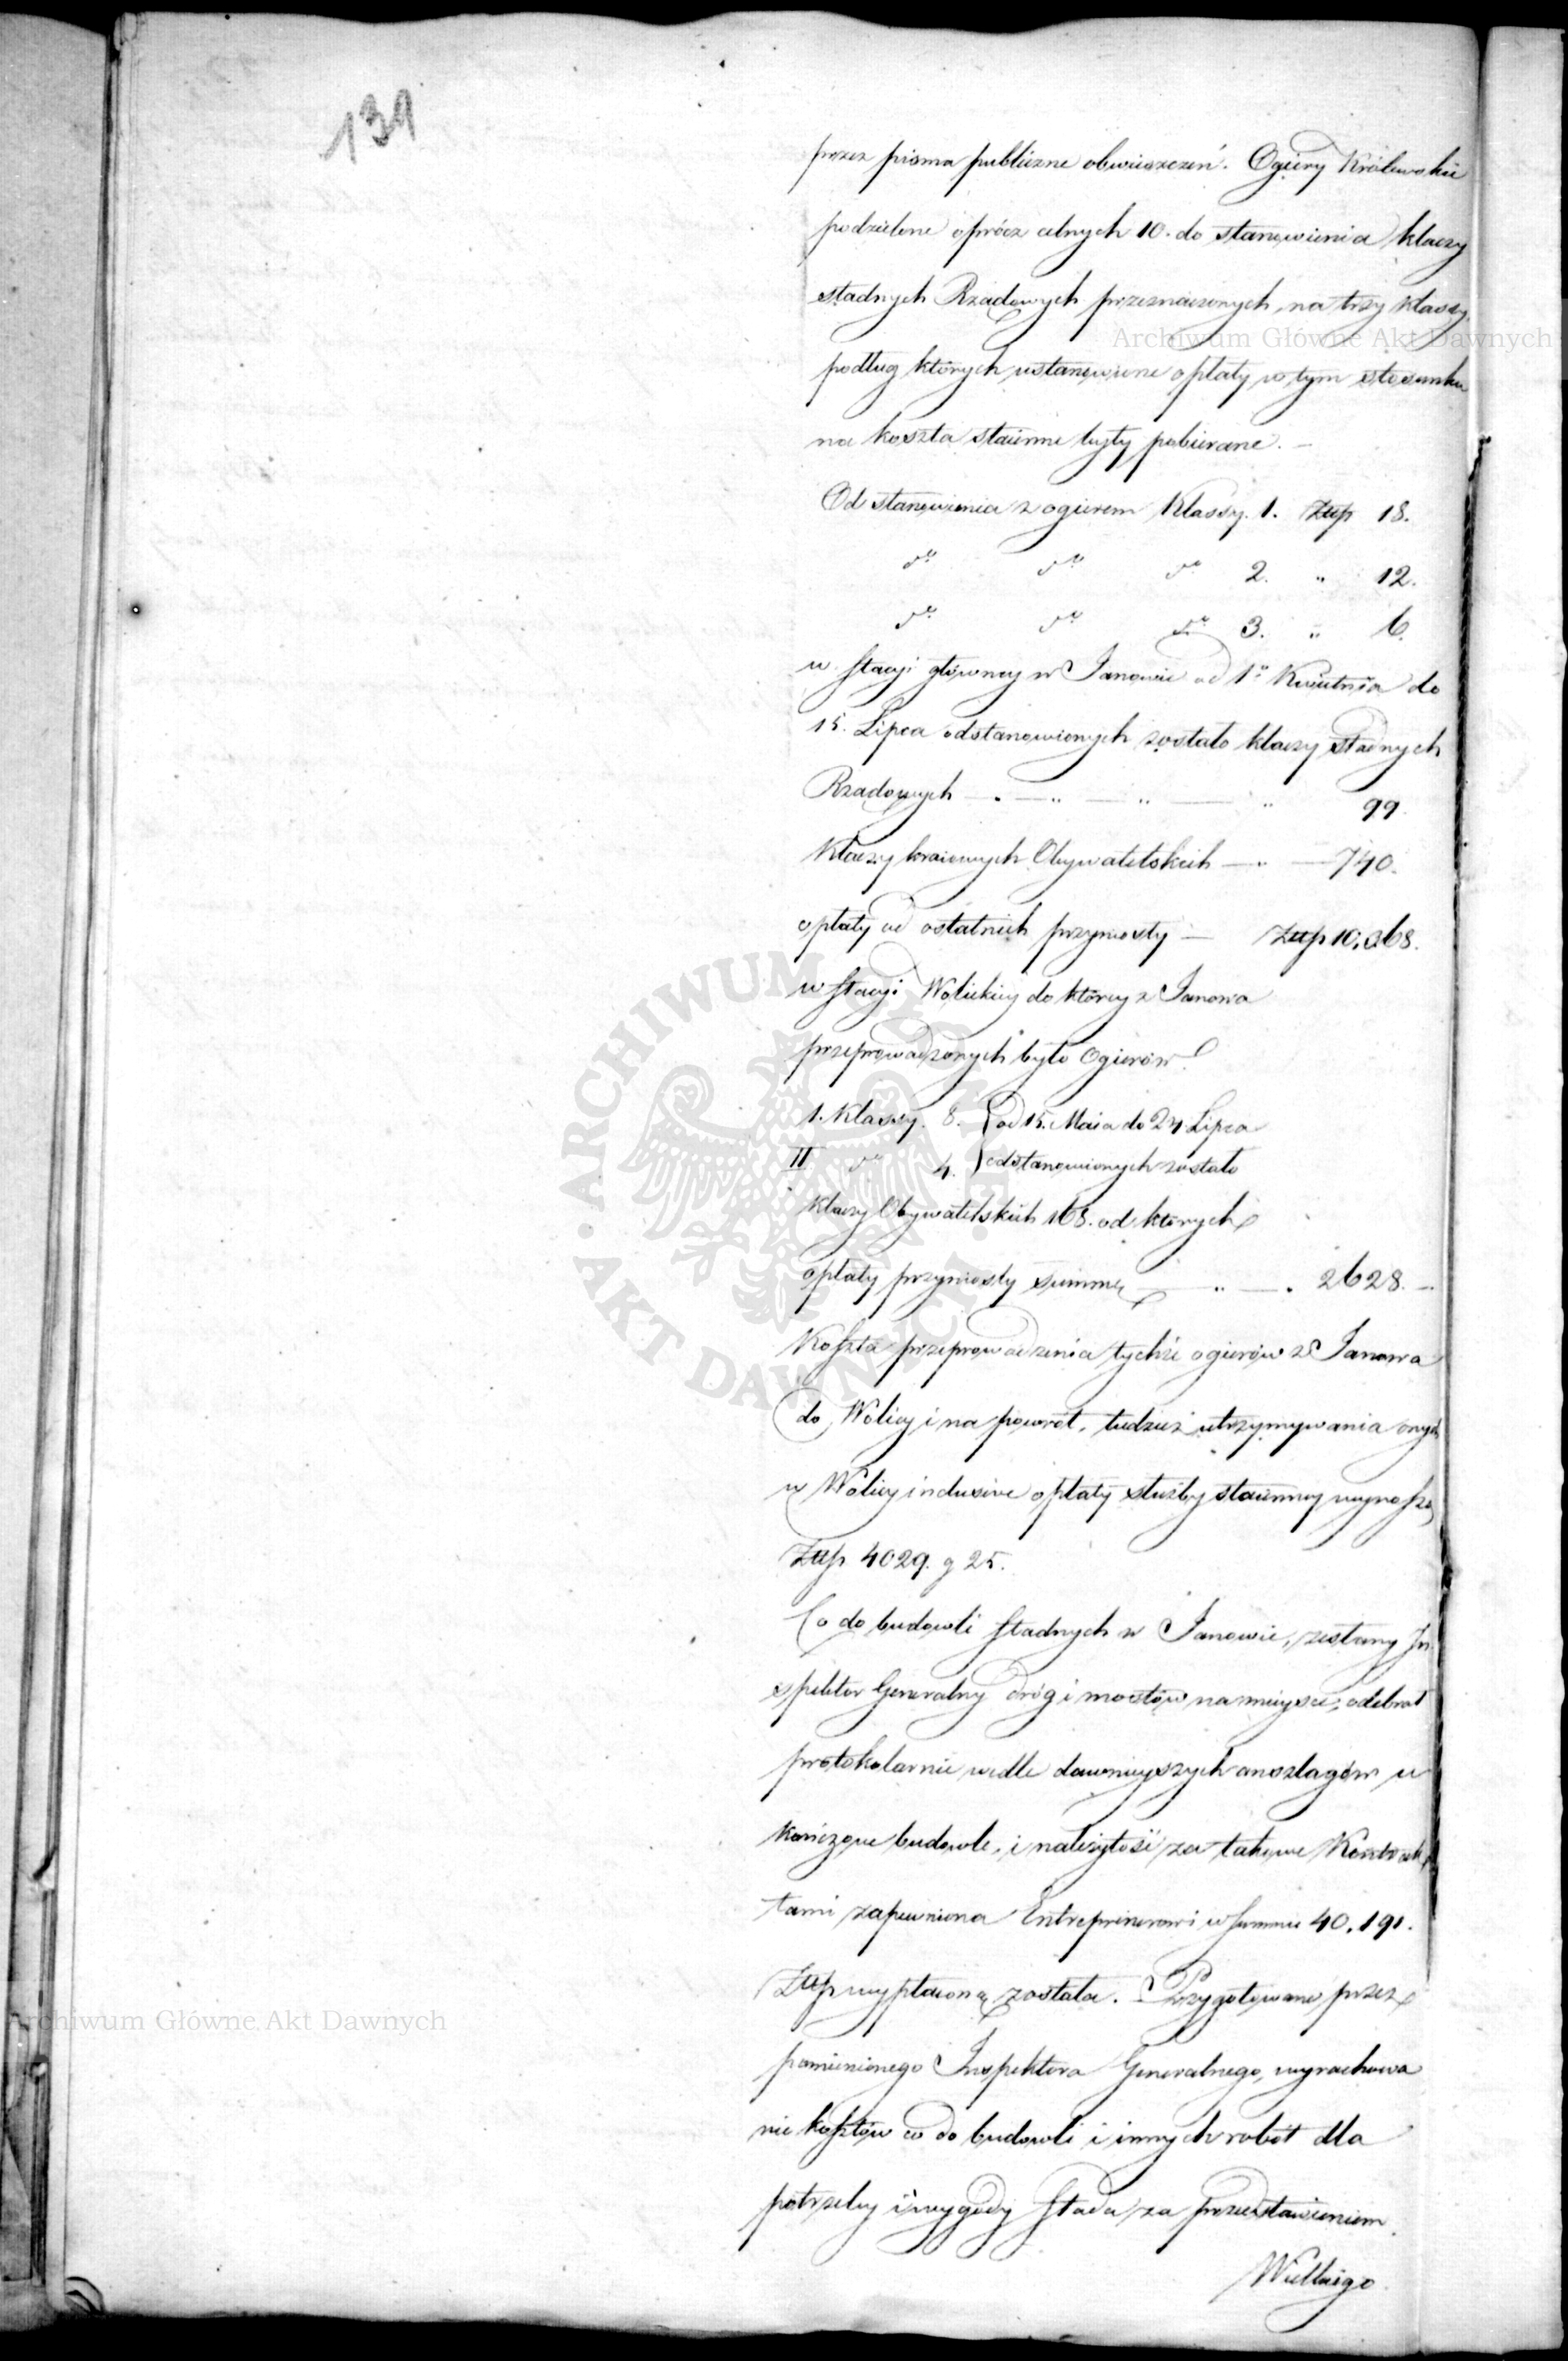 139
przez pisma publiczne obwieszczeń. Ogiery Królewskie
podzielone oprócz celnych 10. do stanowienia klaczy
stadnych Rządowych przeznaczonych, na trzy klassy,
podług których ustanowione opłaty w tym stosunku
na koszta staienne były pobierane. —
Od stanowienia z ogierem Klassy. 1. Złłp 18.
do do do 2. " 12.
do do do 3. " 6.
w stacyi główney w Janowie od 1o Kwietnia do
15. Lipca odstanowionych zostało klaczy stadnych
Rządowych — " — " — " 99.
Klaczy kraiowych Obywatelskich — " — 740.
opłaty od ostatnich przyniosły — Złłp 10,368.
w stacyi Wolickiey do którey z Janowa
przeprowadzonych było Ogierów
1. Klassy. 8. { od 15. Maia do 24 Lipca
II do 4. } odstanowionych zostało
klaczy Obywatelskich 168. od których
opłaty przyniosły summę — " — . 2628. —
Koszta przeprowadzenia tychże ogierów z Janowa
do Wolicy i na powrót, tudzież utrzymywania onych
w Wolicy inclusive opłaty służby staienney wynoszą
Złłp 4029. g 25.
Co do budowli stadnych w Janowie, zesłany In
spektor Generalny dróg i mostów na mieysce, odebrał
protokolarnie wedle dawnieyszych anszlagów u
kończone budowle, i należytość za takowe Kontrak
tami zapewniona Entreprinerowi w summie 40,191.
Złłp wypłaconą została. Przygotowane przez
pomienionego Inspektora Generalnego, wyrachowa
nie kosztów co do budowli i innych robót dla
potrzeby i wygody stada za przedstawieniem
Wielkiego
Archiwum Główne Akt Dawnych
Archiwum Główne Akt Dawnych
ARCHIWUM GŁÓWNE AKT DAWNYCH